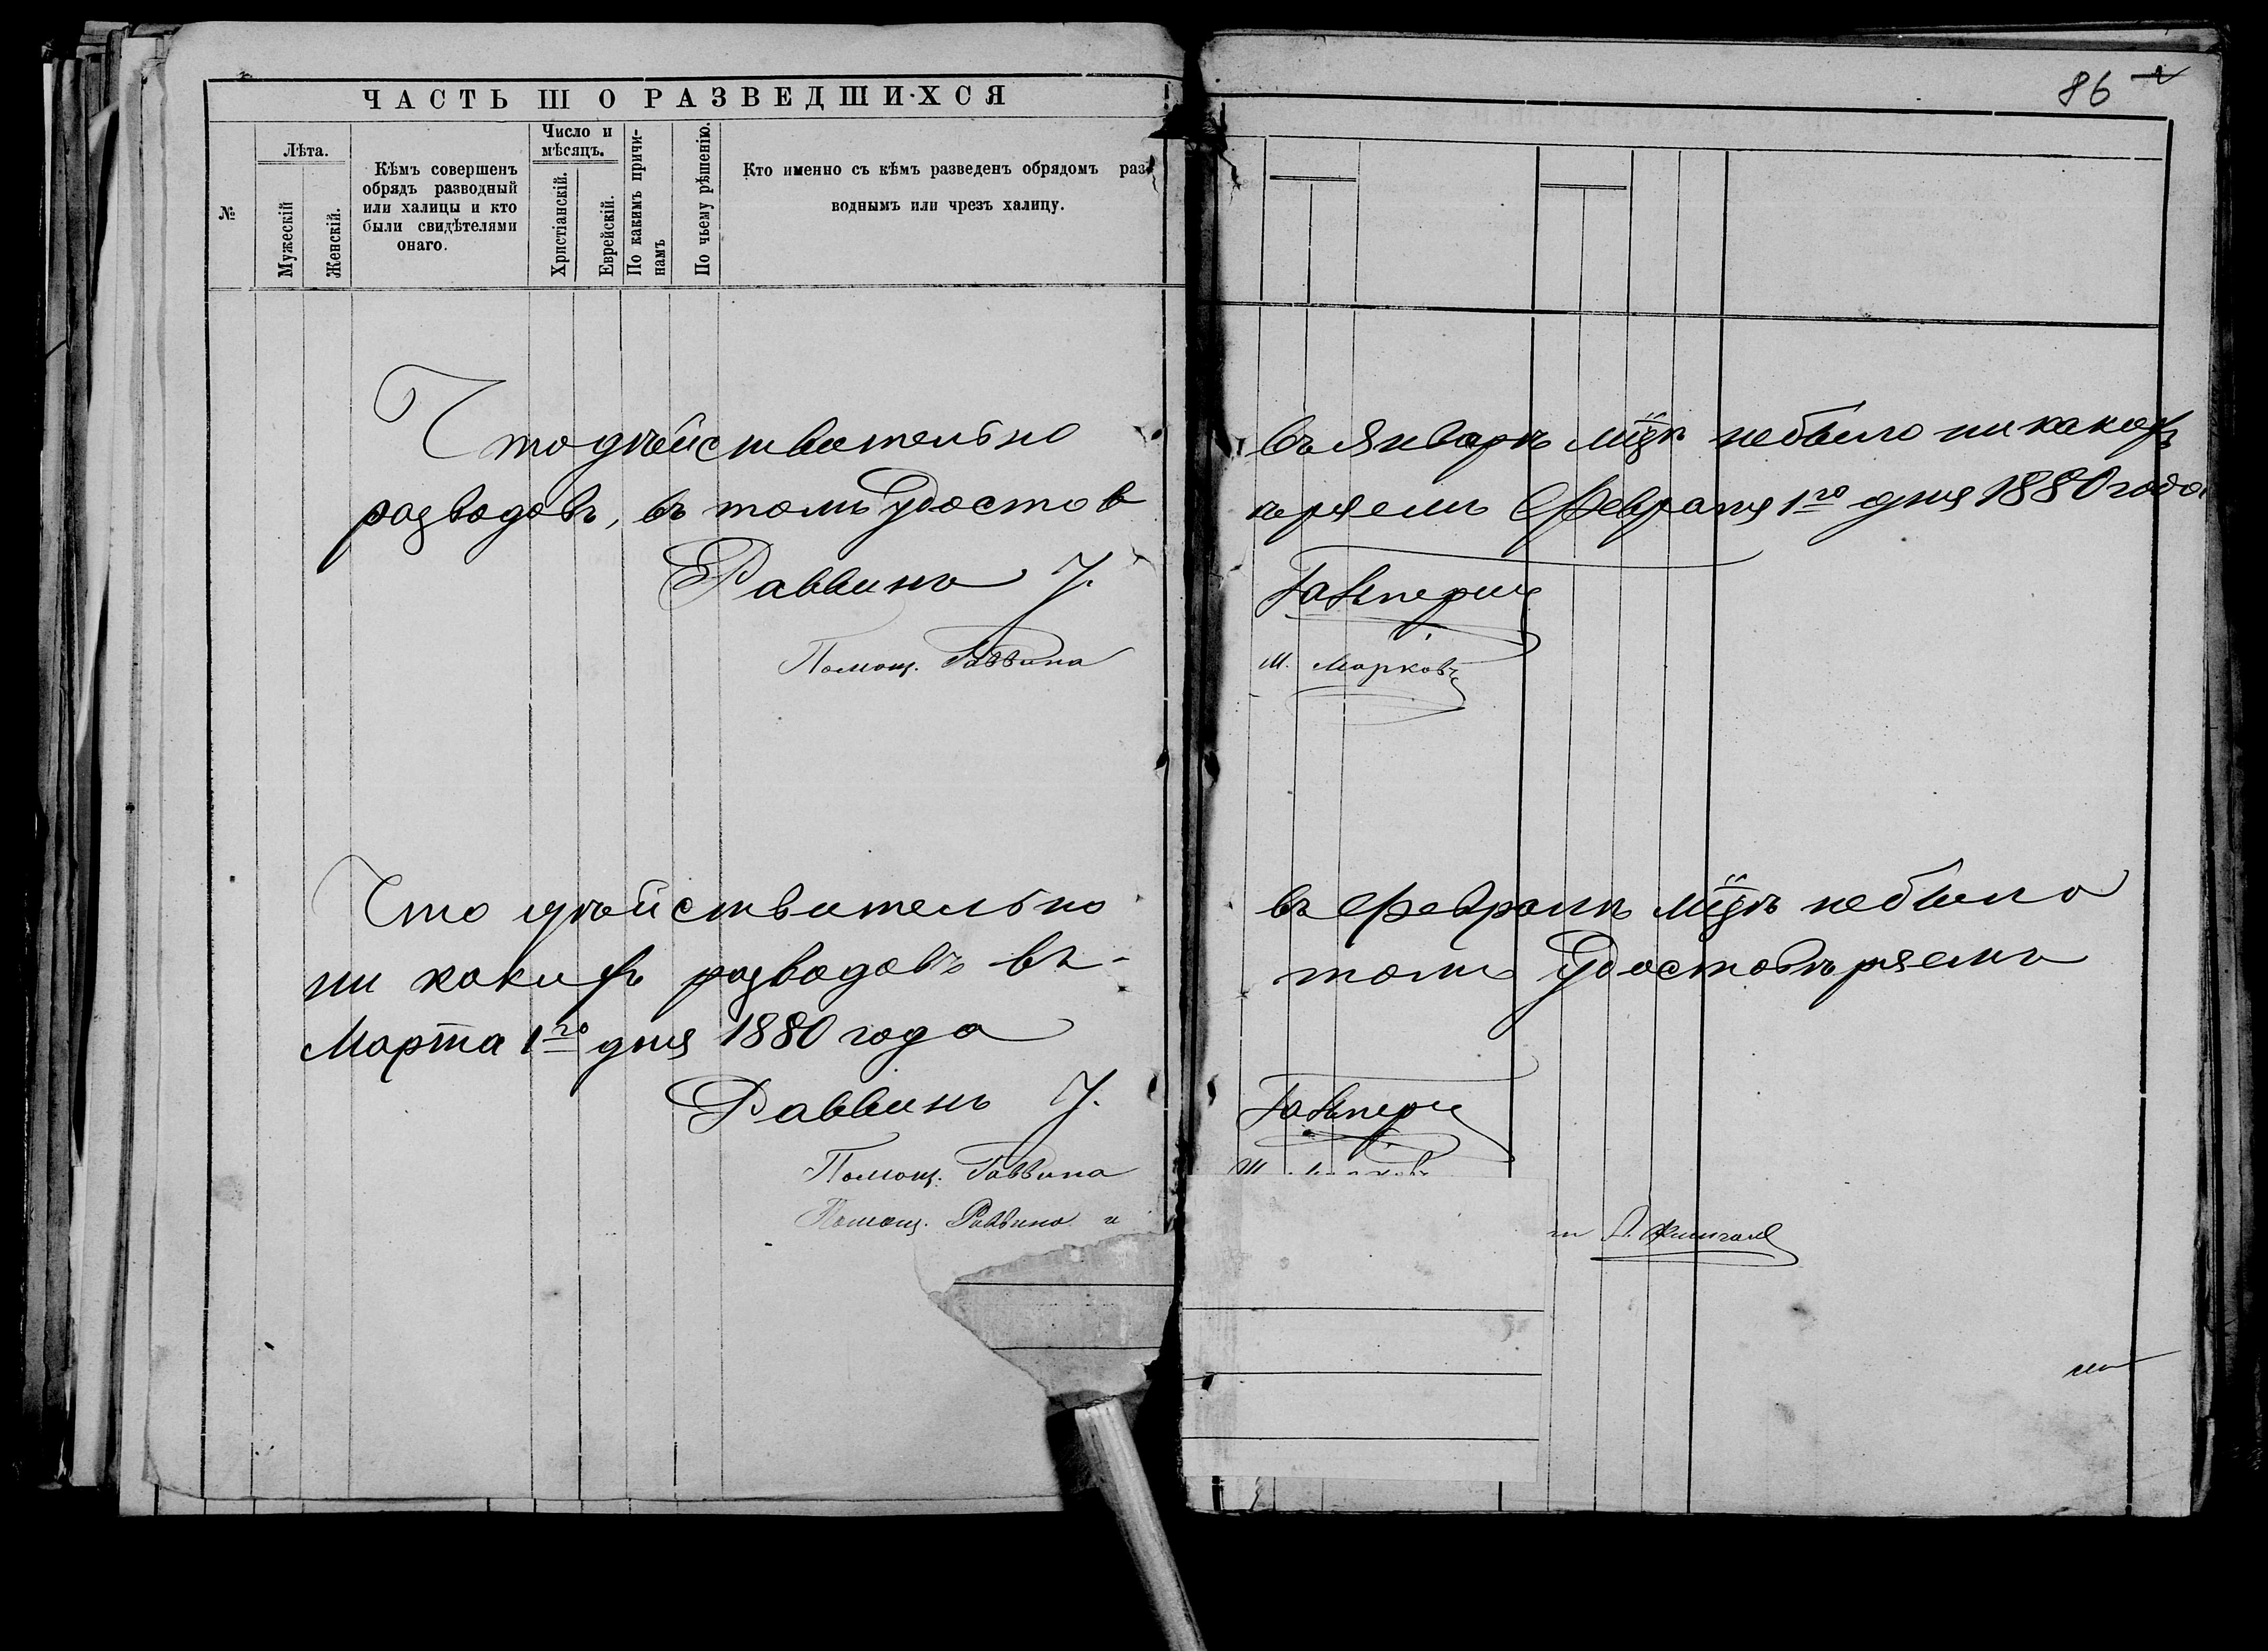 86
ЧАСТЬ III О РАЗВЕДШИХСЯ
№
Лѣта.
Мужескій
Женскій.
Кѣмъ совершенъ
обрядъ разводный
или халицы и кто
были свидѣтелями
онаго.
Число и
мѣсяцъ.
Христіанскій.
Еврейскій.
По какимъ причи-
намъ
По чьему рѣшенію.
Кто именно съ кѣмъ разведенъ обрядомъ раз
воднымъ или чрезъ халицу.
Что дѣйствительно въ Январѣ мцѣ небыло ни какихъ
разводовъ, въ томъ Удостовѣряемъ Февраля 1го дня 1880 года
Раввинъ У. Гальперинъ
Помощ. Раввина Ш. Марковъ
Что дѣйствительно въ Февралѣ мцѣ небыло
ни какихъ разводовъ въ- томъ Удостовѣряемъ
Марта 1го дня 1880 года
Раввинъ У. Гальперинъ
Помощ. Раввина Ш.
Помощ. Раввина и